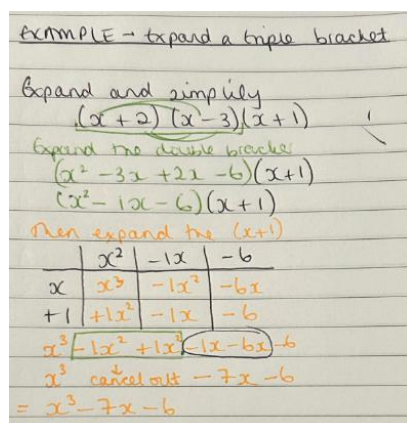 EXAMPLE → Expand a triple bracket
Expand and simplify
(x + 2) (x - 3)(x + 1)
Expand the double bracket
(x² - 3x + 2x - 6)(x+1)
(x² - 1x - 6)(x + 1)
Then expand the (x+1)
x² | -1x | -6
x | x³ | -1x² | -6x
+1 | +1x² | -1x | -6
x³ -1x² + 1x² -1x - 6x - 6
x³ cancel out - 7x - 6
= x³ - 7x - 6